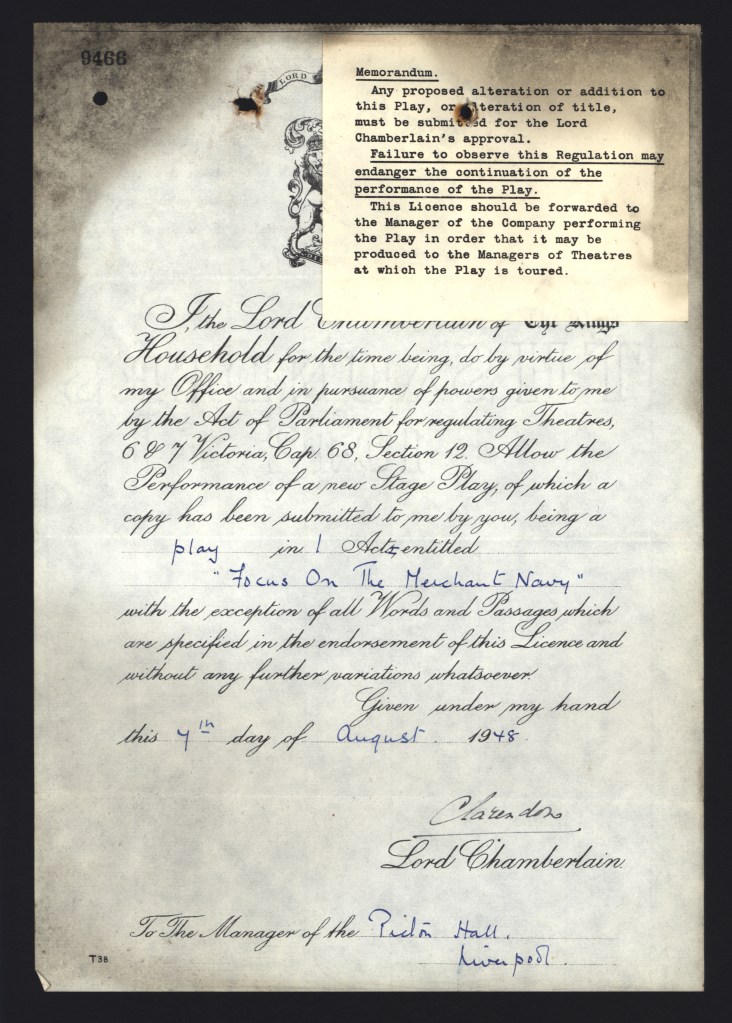 9466
LORD
Memorandum.
Any proposed alteration or addition to
this Play, or alteration of title,
must be submitted for the Lord
Chamberlain's approval.
Failure to observe this Regulation may
endanger the continuation of the
performance of the Play.
This Licence should be forwarded to
the Manager of the Company performing
the Play in order that it may be
produced to the Managers of Theatres
at which the Play is toured.
I, the Lord Chamberlain of The King's
Household for the time being, do by virtue of
my Office and in pursuance of powers given to me
by the Act of Parliament for regulating Theatres,
6 & 7 Victoria, Cap. 68, Section 12. Allow the
Performance of a new Stage Play, of which a
copy has been submitted to me by you, being a
play in 1 Acts, entitled
"Focus On The Merchant Navy"
with the exception of all Words and Passages which
are specified in the endorsement of this Licence and
without any further variations whatsoever.
Given under my hand
this 7th day of August. 1948.
Clarendon
Lord Chamberlain.
To The Manager of the Picton Hall,
Liverpool.
T38